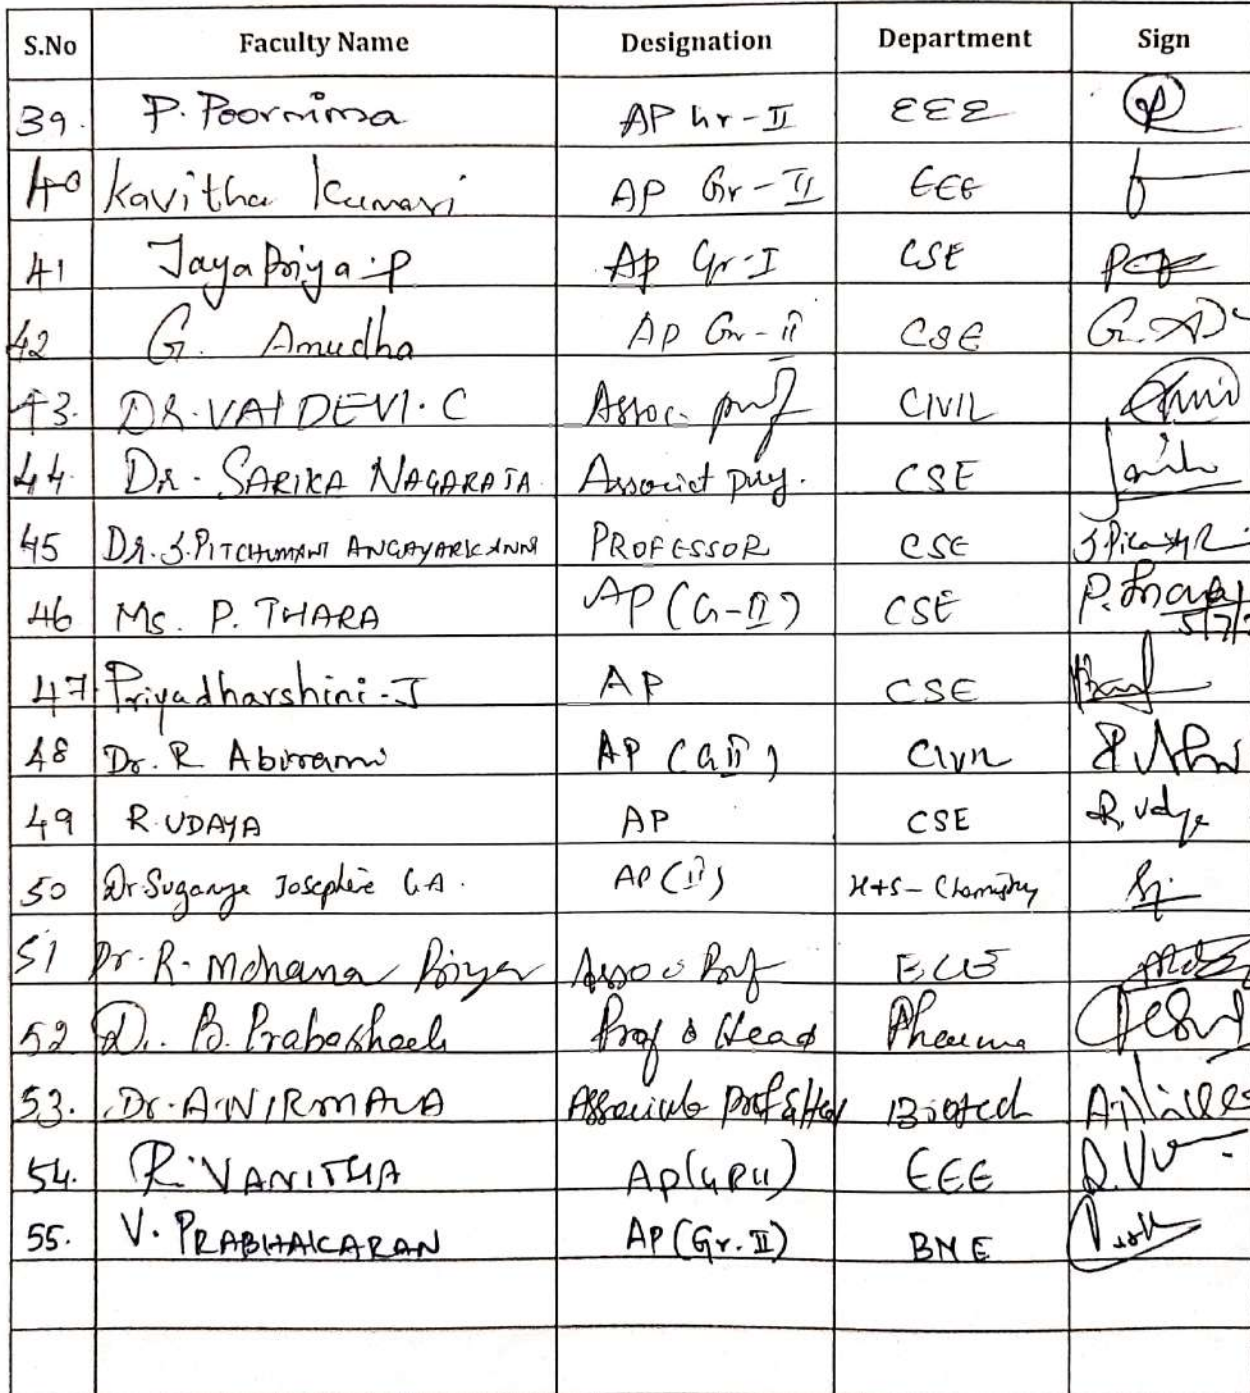 S.No Faculty Name Designation Department Sign
39. P. Poornima AP Gr-II EEE
40 Kavitha Kumari AP Gr-II EEE
41 JayaPriya.P AP Gr-I CSE
42 G. Amudha AP Gr-II CSE
43. DR.VAIDEVI.C Assoc. prof CIVIL
44. DR. SARIKA NAGARAJA Associat prof. CSE
45 DR. J.PITCHUMANI ANGAYARKANNI PROFESSOR CSE
46 Ms. P. THARA AP (G-II) CSE 5/7/
47. Priyadharshini-J AP CSE
48 Dr. R Abirrami AP (GII) Civil
49 R.UDAYA AP CSE R. Udaya
50 Dr.Suganya Josephine G.A. AP (II) H+S- Chemistry
51 Dr. R. Mohana Priya Assoc Prof ECE
52 Dr. B. Prabasheela Prof & Head Pharma
53. Dr.A.NIRMALA Associate Prof & Head Biotech
54. R.VANITHA AP(GRII) EEE
55. V. PRABHAKARAN AP(Gr.II) BME